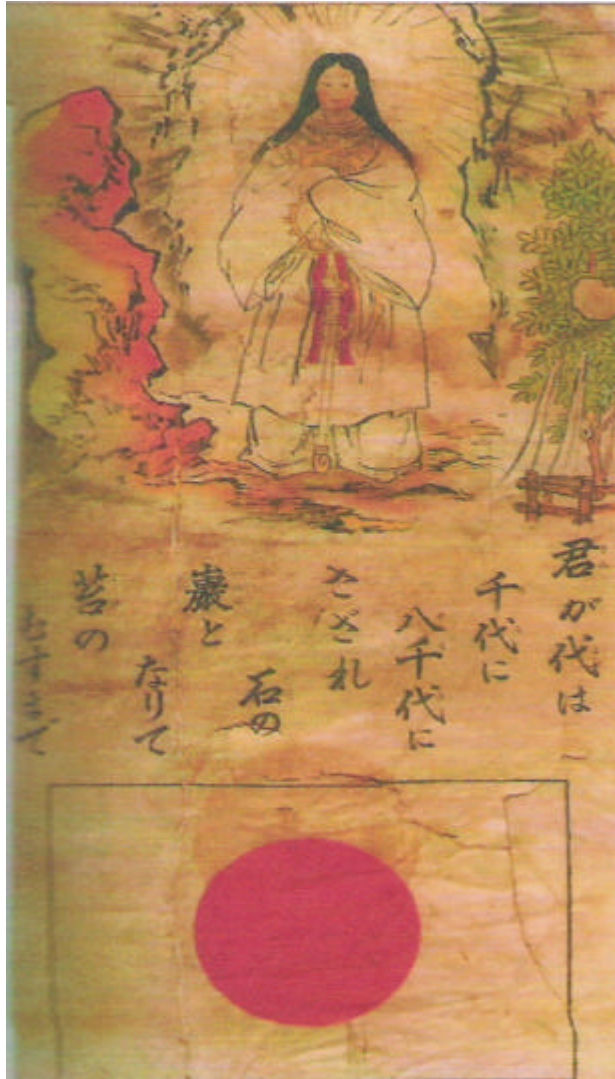 君が代は
千代に
八千代に
さざれ
石の
巌と
なりて
苔の
むすまで